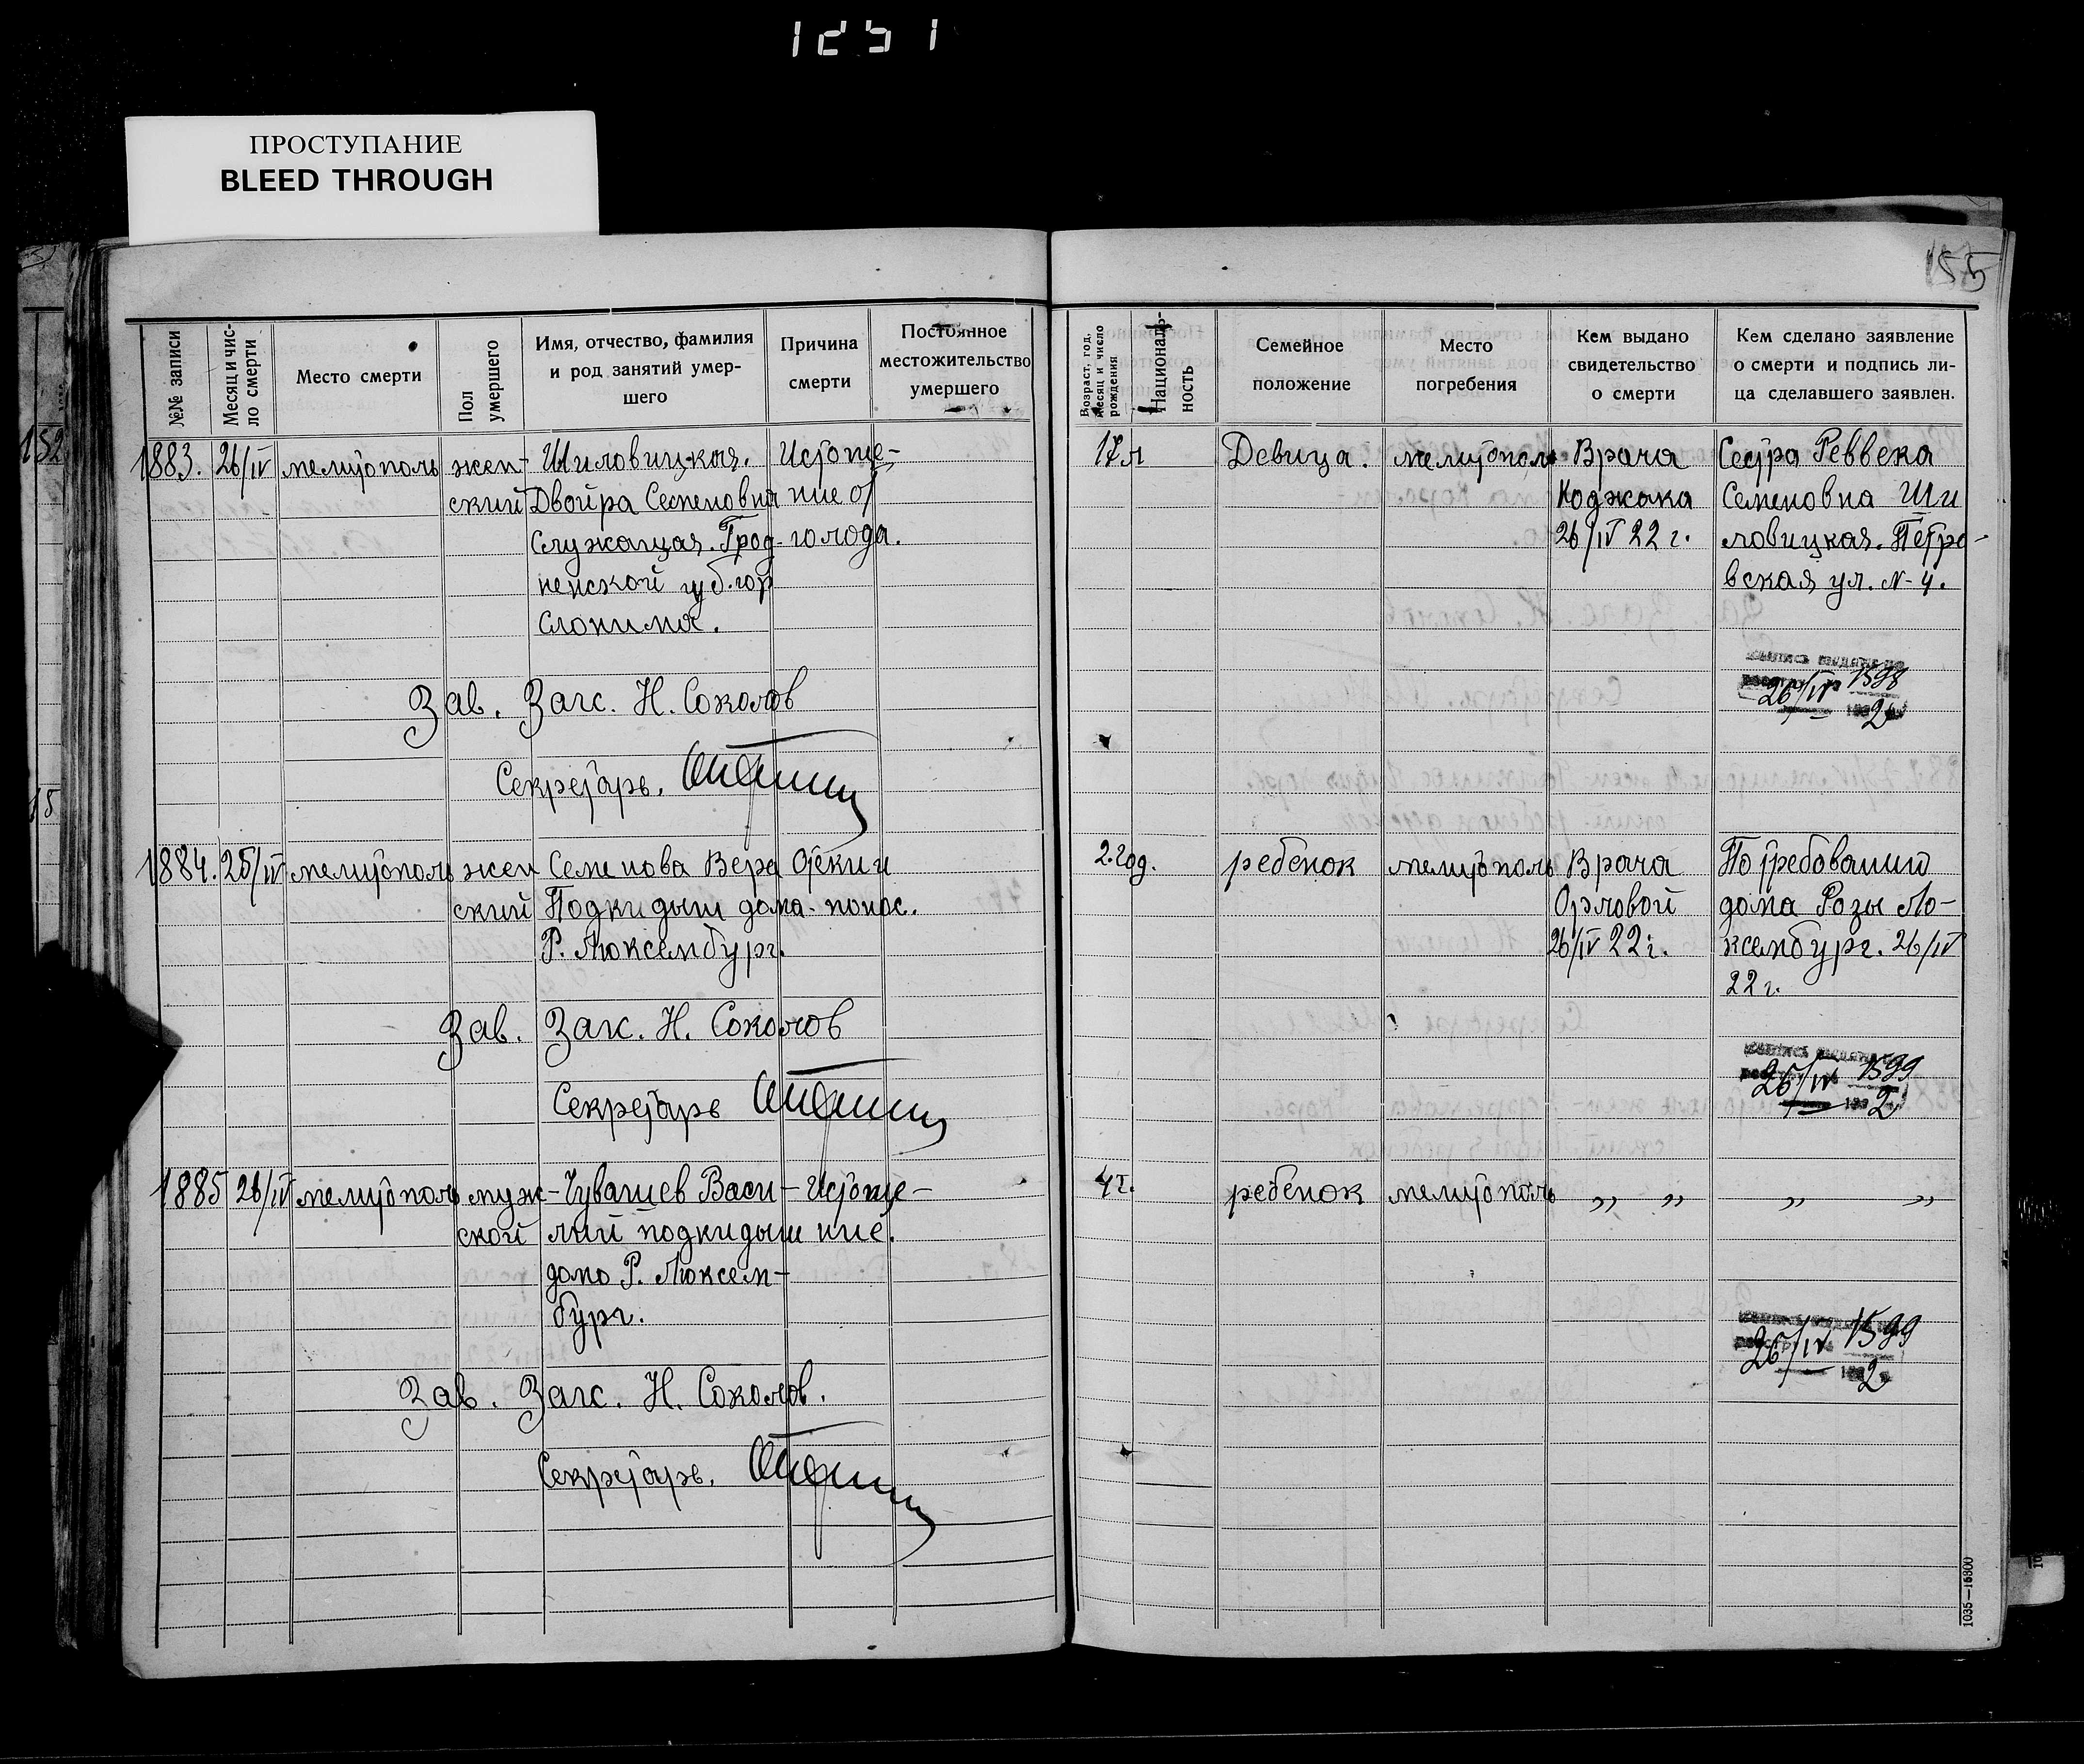 1251
ПРОСТУПАНИЕ
BLEED THROUGH
155
№№ записи
Месяц и чис-
ло смерти
Место смерти
Пол
умершего
Имя, отчество, фамилия
и род занятий умер-
шего
Причина
смерти
Постоянное
местожительство
умершего
Возраст, год,
месяц и число
рождения
Националь-
ность
Семейное
положение
Место
погребения
Кем выдано
свидетельство
о смерти
Кем сделано заявление
о смерти и подпись ли-
ца сделавшего заявлен.
152
1883. 26/IV мелитополь жен- Шиловицкая. Истоще- 17 л Девица. мелитополь Врача Сестра Реввека
ский Двойра Семеновна ние от Коджака Семеновна Ши
Служащая. Грод- голода. 26/IV 22 г. ловицкая. Петро-
ненской губ. гор вская ул. N-4.
Слонима.
Зав. Загс. Н. Соколов
26/IV 1598
192 2
Секретарь.
15
1884. 25/IV мелитополь жен Семенова Вера Отеки и 2. год. ребенок мелитополь Врача По требованию
ский Подкидыш дома- понос. Орловой дома Розы Лю-
Р. Люксембург. 26/IV 22 г. ксембург. 26/IV
22 г.
Зав. Загс. Н. Соколов
26/IV 1599
192 2
Секретарь
1885 26/IV мелитополь муж- Чувашев Васи- Истоще- 4 г. ребенок мелитополь „ „ „ „
ской лий подкидыш ние.
дома Р. Люксем-
бург.
26/IV 1599
192 2
Зав. Загс. Н. Соколов.
Секретарь.
1035—15800